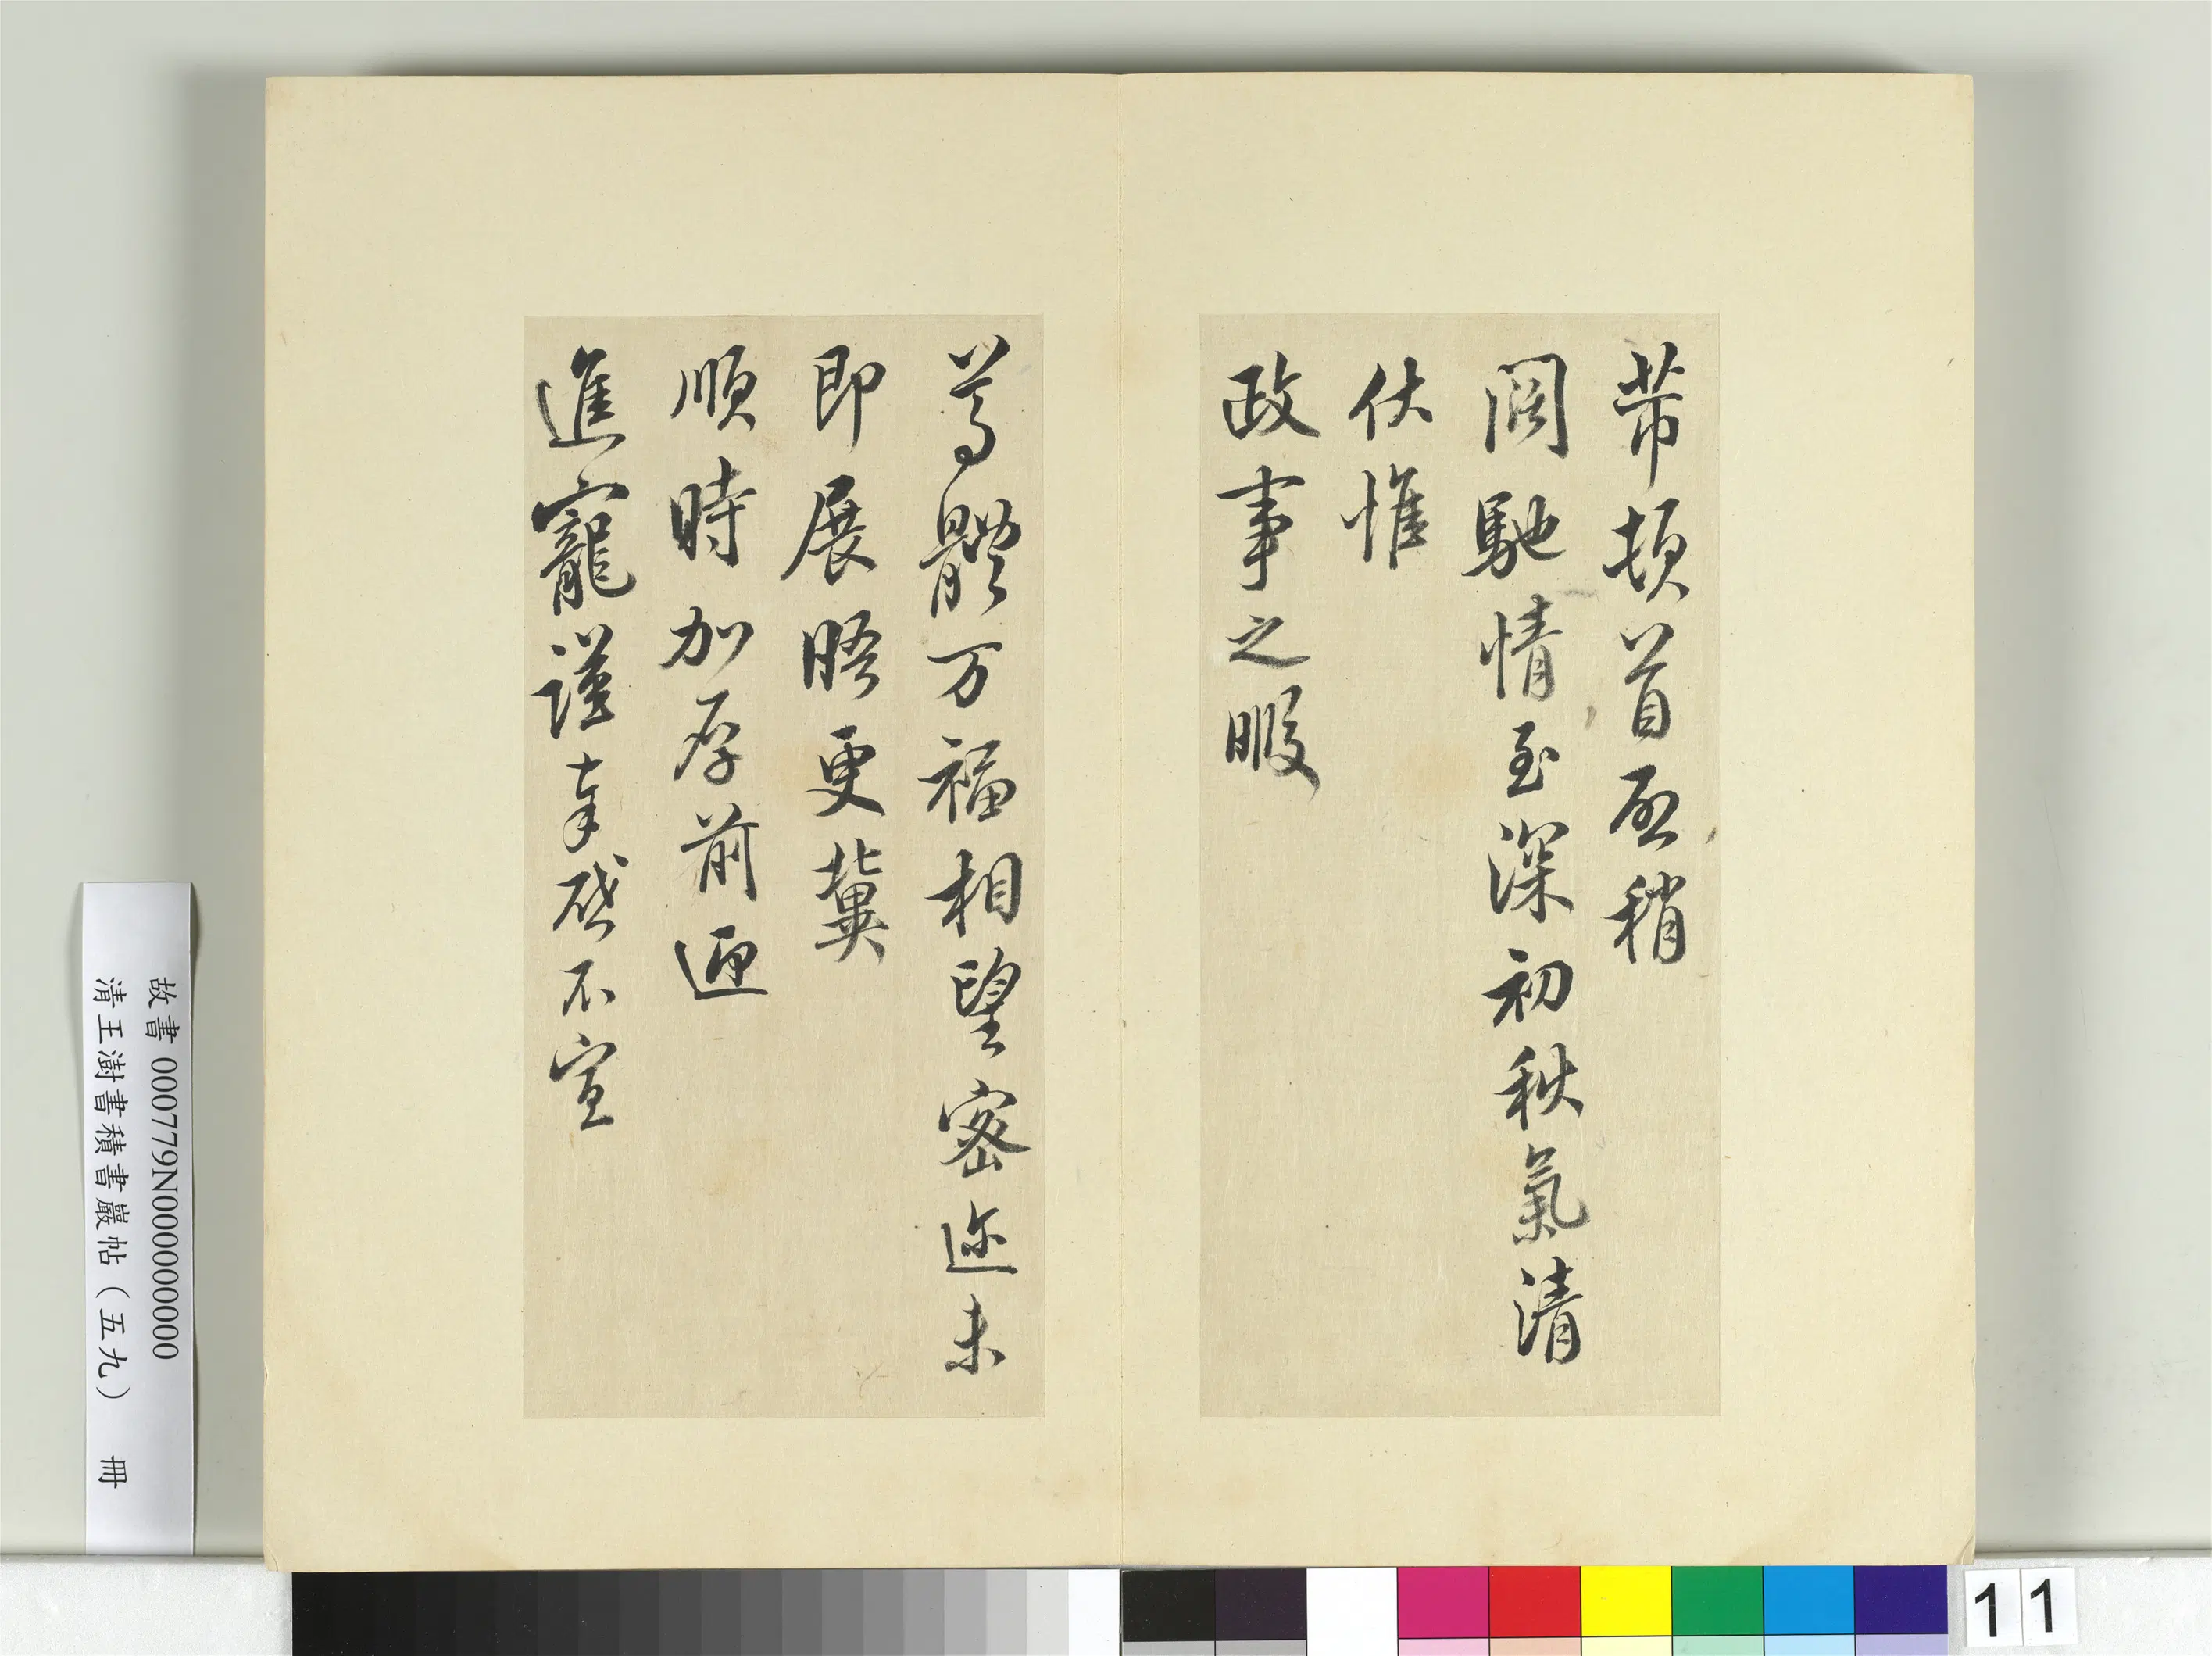 芾頓首启稍
闊馳情至深初秋氣清
伏惟
政事之暇
尊體万福相望密迩未
即展晤更冀
順時加厚前迎
進寵謹奉啓不宣
故書 000779N000000000
清王澍書積書巖帖（五九） 冊
11